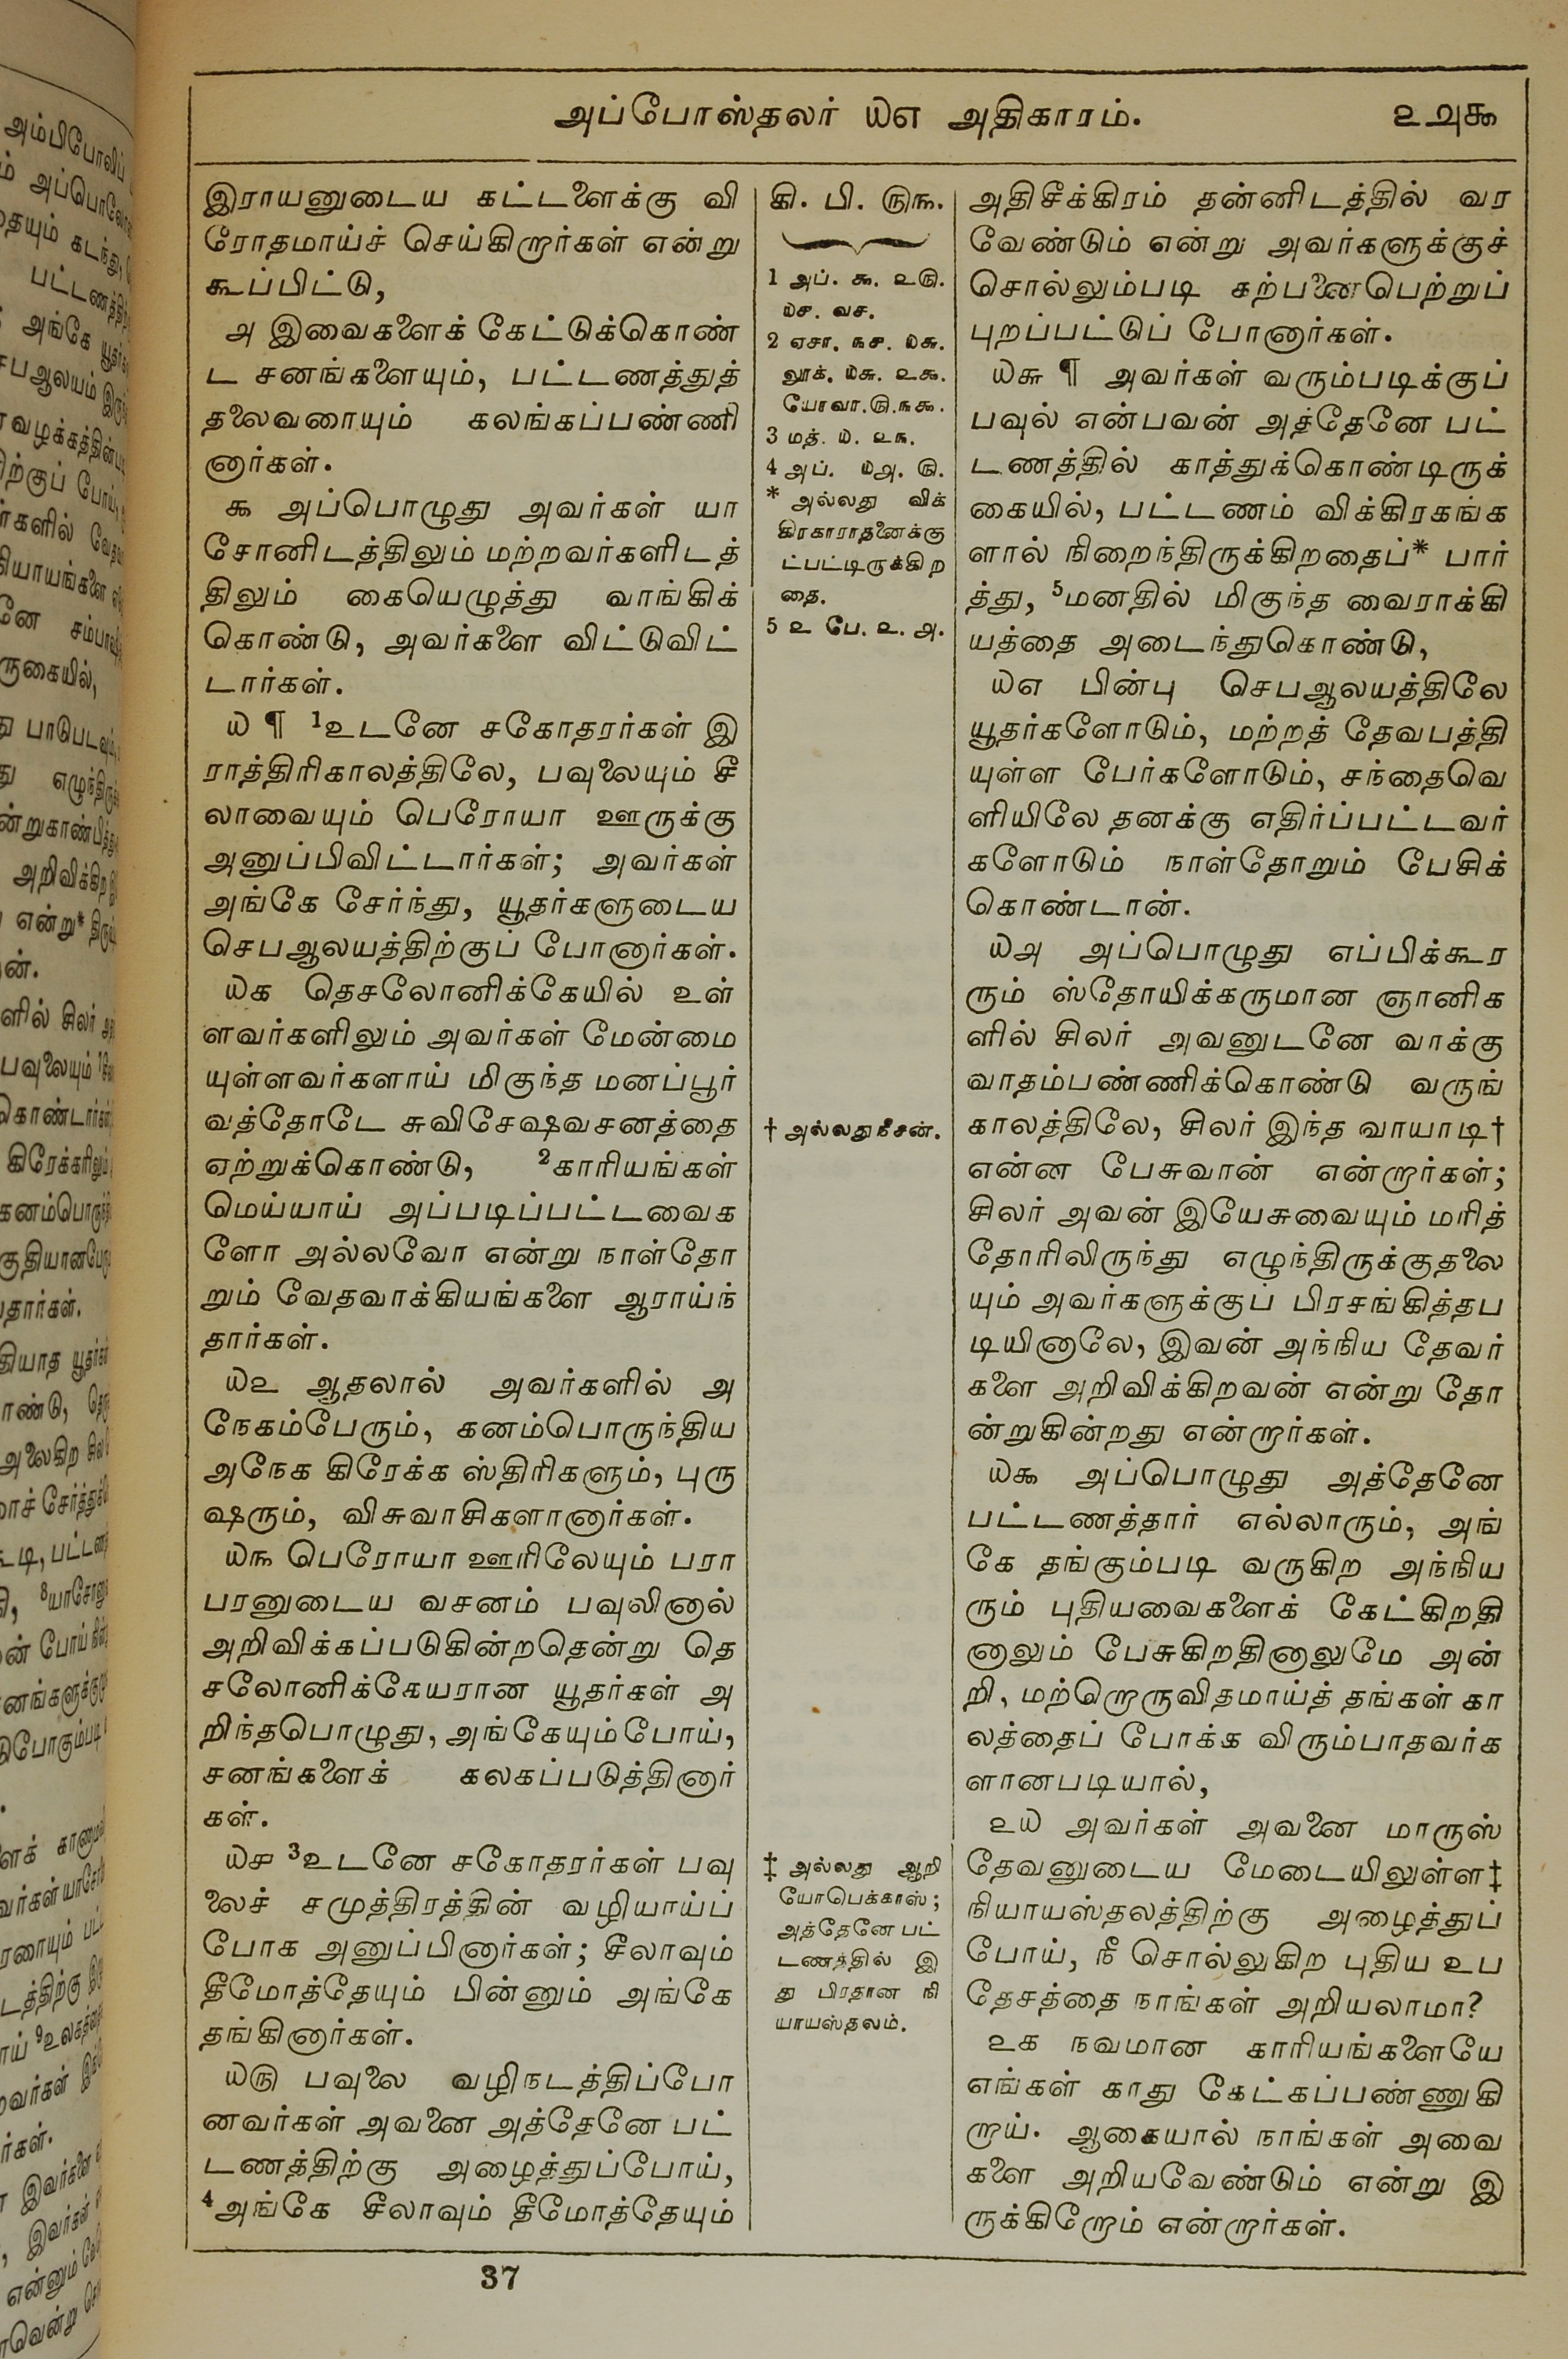 அப்போஸ்தலர் ௰௭ அதிகாரம்.
௨௮௯
இராயனுடைய கட்டளைக்கு வி
ரோதமாய்ச் செய்கிறார்கள் என்று
கூப்பிட்டு,
௮ இவைகளைக் கேட்டுக்கொண்
ட சனங்களையும், பட்டணத்துத்
தலைவரையும் கலங்கப்பண்ணி
னார்கள்.
௯ அப்பொழுது அவர்கள் யா
சோனிடத்திலும் மற்றவர்களிடத்
திலும் கையெழுத்து வாங்கிக்
கொண்டு, அவர்களை விட்டுவிட்
டார்கள்.
௰ ¶ 1உடனே சகோதரர்கள் இ
ராத்திரிகாலத்திலே, பவுலையும் சீ
லாவையும் பெரோயா ஊருக்கு
அனுப்பிவிட்டார்கள்; அவர்கள்
அங்கே சேர்ந்து, யூதர்களுடைய
செபஆலயத்திற்குப் போனார்கள்.
௰௧ தெசலோனிக்கேயில் உள்
ளவர்களிலும் அவர்கள் மேன்மை
யுள்ளவர்களாய் மிகுந்த மனப்பூர்
வத்தோடே சுவிசேஷவசனத்தை
ஏற்றுக்கொண்டு, 2காரியங்கள்
மெய்யாய் அப்படிப்பட்டவைக
ளோ அல்லவோ என்று நாள்தோ
றும் வேதவாக்கியங்களை ஆராய்ந்
தார்கள்.
௰௨ ஆதலால் அவர்களில் அ
நேகம்பேரும், கனம்பொருந்திய
அநேக கிரேக்க ஸ்திரிகளும், புரு
ஷரும், விசுவாசிகளானார்கள்.
௰௩ பெரோயா ஊரிலேயும் பரா
பரனுடைய வசனம் பவுலினால்
அறிவிக்கப்படுகின்றதென்று தெ
சலோனிக்கேயரான யூதர்கள் அ
றிந்தபொழுது, அங்கேயும்போய்,
சனங்களைக் கலகப்படுத்தினார்
கள்.
௰௪ 3உடனே சகோதரர்கள் பவு
லைச் சமுத்திரத்தின் வழியாய்ப்
போக அனுப்பினார்கள்; சீலாவும்
தீமோத்தேயும் பின்னும் அங்கே
தங்கினார்கள்.
௰௫ பவுலை வழிநடத்திப்போ
னவர்கள் அவனை அத்தேனே பட்
டணத்திற்கு அழைத்துப்போய்,
4அங்கே சீலாவும் தீமோத்தேயும்
கி. பி. ௫௩.
1 அப். ௯. ௨௫.
௰௪. ௨௪.
2 ஏசா. ௩௪. ௰௬.
லூக். ௰௬. ௨௯.
யோவா.௫.௩௯.
3 மத். ௰. ௨௩.
4 அப். ௰௮. ௫.
* அல்லது விக்
கிரகாராதனைக்கு
ட்பட்டிருக்கிற
தை.
5 ௨ பே. ௨. ௮.
† அல்லது நீசன்.
‡ அல்லது ஆறி
யோபெக்காஸ்;
அத்தேனே பட்
டணத்தில் இ
து பிரதான நி
யாயஸ்தலம்.
அதிசீக்கிரம் தன்னிடத்தில் வர
வேண்டும் என்று அவர்களுக்குச்
சொல்லும்படி கற்பனைபெற்றுப்
புறப்பட்டுப் போனார்கள்.
௰௬ ¶ அவர்கள் வரும்படிக்குப்
பவுல் என்பவன் அத்தேனே பட்
டணத்தில் காத்துக்கொண்டிருக்
கையில், பட்டணம் விக்கிரகங்க
ளால் நிறைந்திருக்கிறதைப்* பார்
த்து, 5மனதில் மிகுந்த வைராக்கி
யத்தை அடைந்துகொண்டு,
௰௭ பின்பு செபஆலயத்திலே
யூதர்களோடும், மற்றத் தேவபத்தி
யுள்ள பேர்களோடும், சந்தைவெ
ளியிலே தனக்கு எதிர்ப்பட்டவர்
களோடும் நாள்தோறும் பேசிக்
கொண்டான்.
௰௮ அப்பொழுது எப்பிக்கூர
ரும் ஸ்தோயிக்கருமான ஞானிக
ளில் சிலர் அவனுடனே வாக்கு
வாதம்பண்ணிக்கொண்டு வருங்
காலத்திலே, சிலர் இந்த வாயாடி†
என்ன பேசுவான் என்றார்கள்;
சிலர் அவன் இயேசுவையும் மரித்
தோரிலிருந்து எழுந்திருக்குதலை
யும் அவர்களுக்குப் பிரசங்கித்தப
டியினாலே, இவன் அந்நிய தேவர்
களை அறிவிக்கிறவன் என்று தோ
ன்றுகின்றது என்றார்கள்.
௰௯ அப்பொழுது அத்தேனே
பட்டணத்தார் எல்லாரும், அங்
கே தங்கும்படி வருகிற அந்நிய
ரும் புதியவைகளைக் கேட்கிறதி
னாலும் பேசுகிறதினாலுமே அன்
றி, மற்றொருவிதமாய்த் தங்கள் கா
லத்தைப் போக்க விரும்பாதவர்க
ளானபடியால்,
௨௰ அவர்கள் அவனை மாருஸ்
தேவனுடைய மேடையிலுள்ள‡
நியாயஸ்தலத்திற்கு அழைத்துப்
போய், நீ சொல்லுகிற புதிய உப
தேசத்தை நாங்கள் அறியலாமா?
௨௧ நவமான காரியங்களையே
எங்கள் காது கேட்கப்பண்ணுகி
றாய். ஆகையால் நாங்கள் அவை
களை அறியவேண்டும் என்று இ
ருக்கிறோம் என்றார்கள்.
37